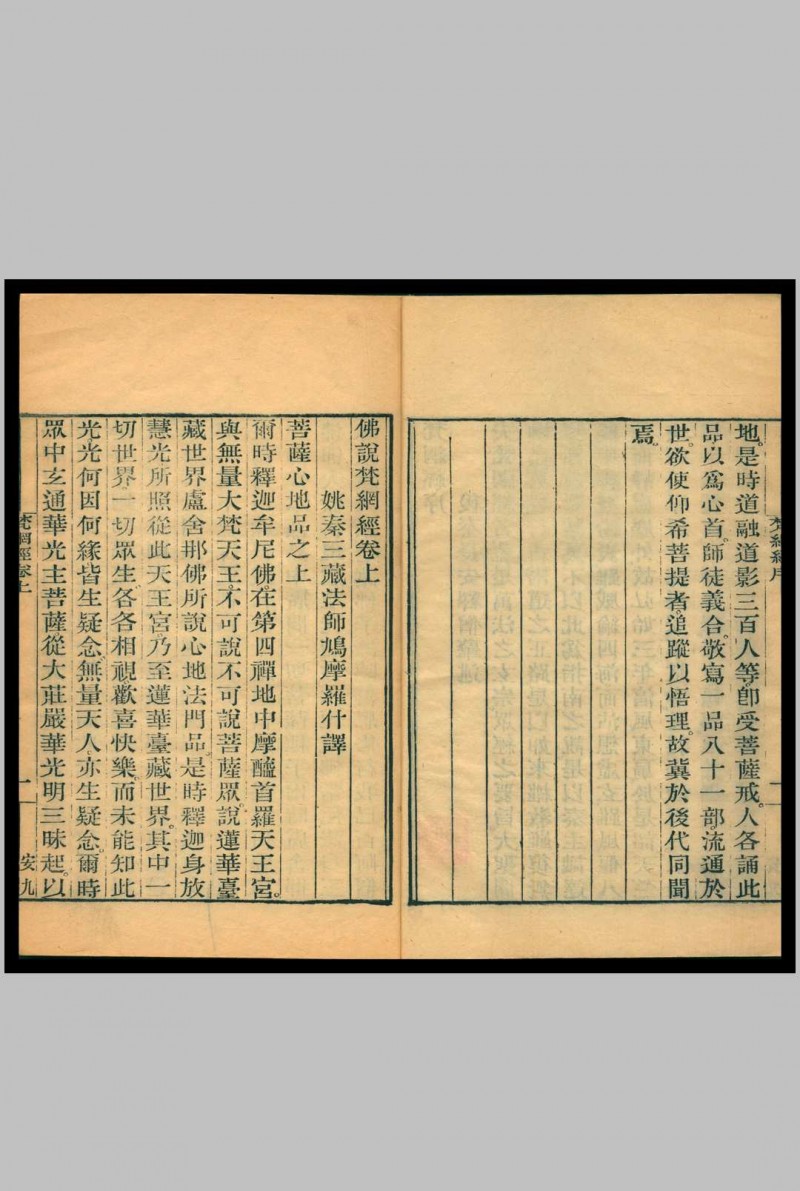 地。是時道融道影三百人等。卽受菩薩戒。人各誦此
品以爲心首。師徒義合。敬寫一品八十一部。流通於
世。欲使仰希菩提者。追蹤以悟理。故冀於後代同聞
焉。
佛說梵網經卷上
姚秦三藏法師鳩摩羅什譯
菩薩心地品之上
爾時釋迦牟尼佛。在第四禪地中摩醯首羅天王宮。
與無量大梵天王。不可說不可說菩薩眾。說蓮華臺
藏世界盧舍那佛所說心地法門品。是時釋迦身放
慧光所照。從此天王宮。乃至蓮華臺藏世界。其中一
切世界一切眾生。各各相視。歡喜快樂。而未能知此
光光何因何緣。皆生疑念。無量天人。亦生疑念。爾時
眾中玄通華光主菩薩。從大莊嚴華光明三昧起。以
梵網經卷上
一
安九